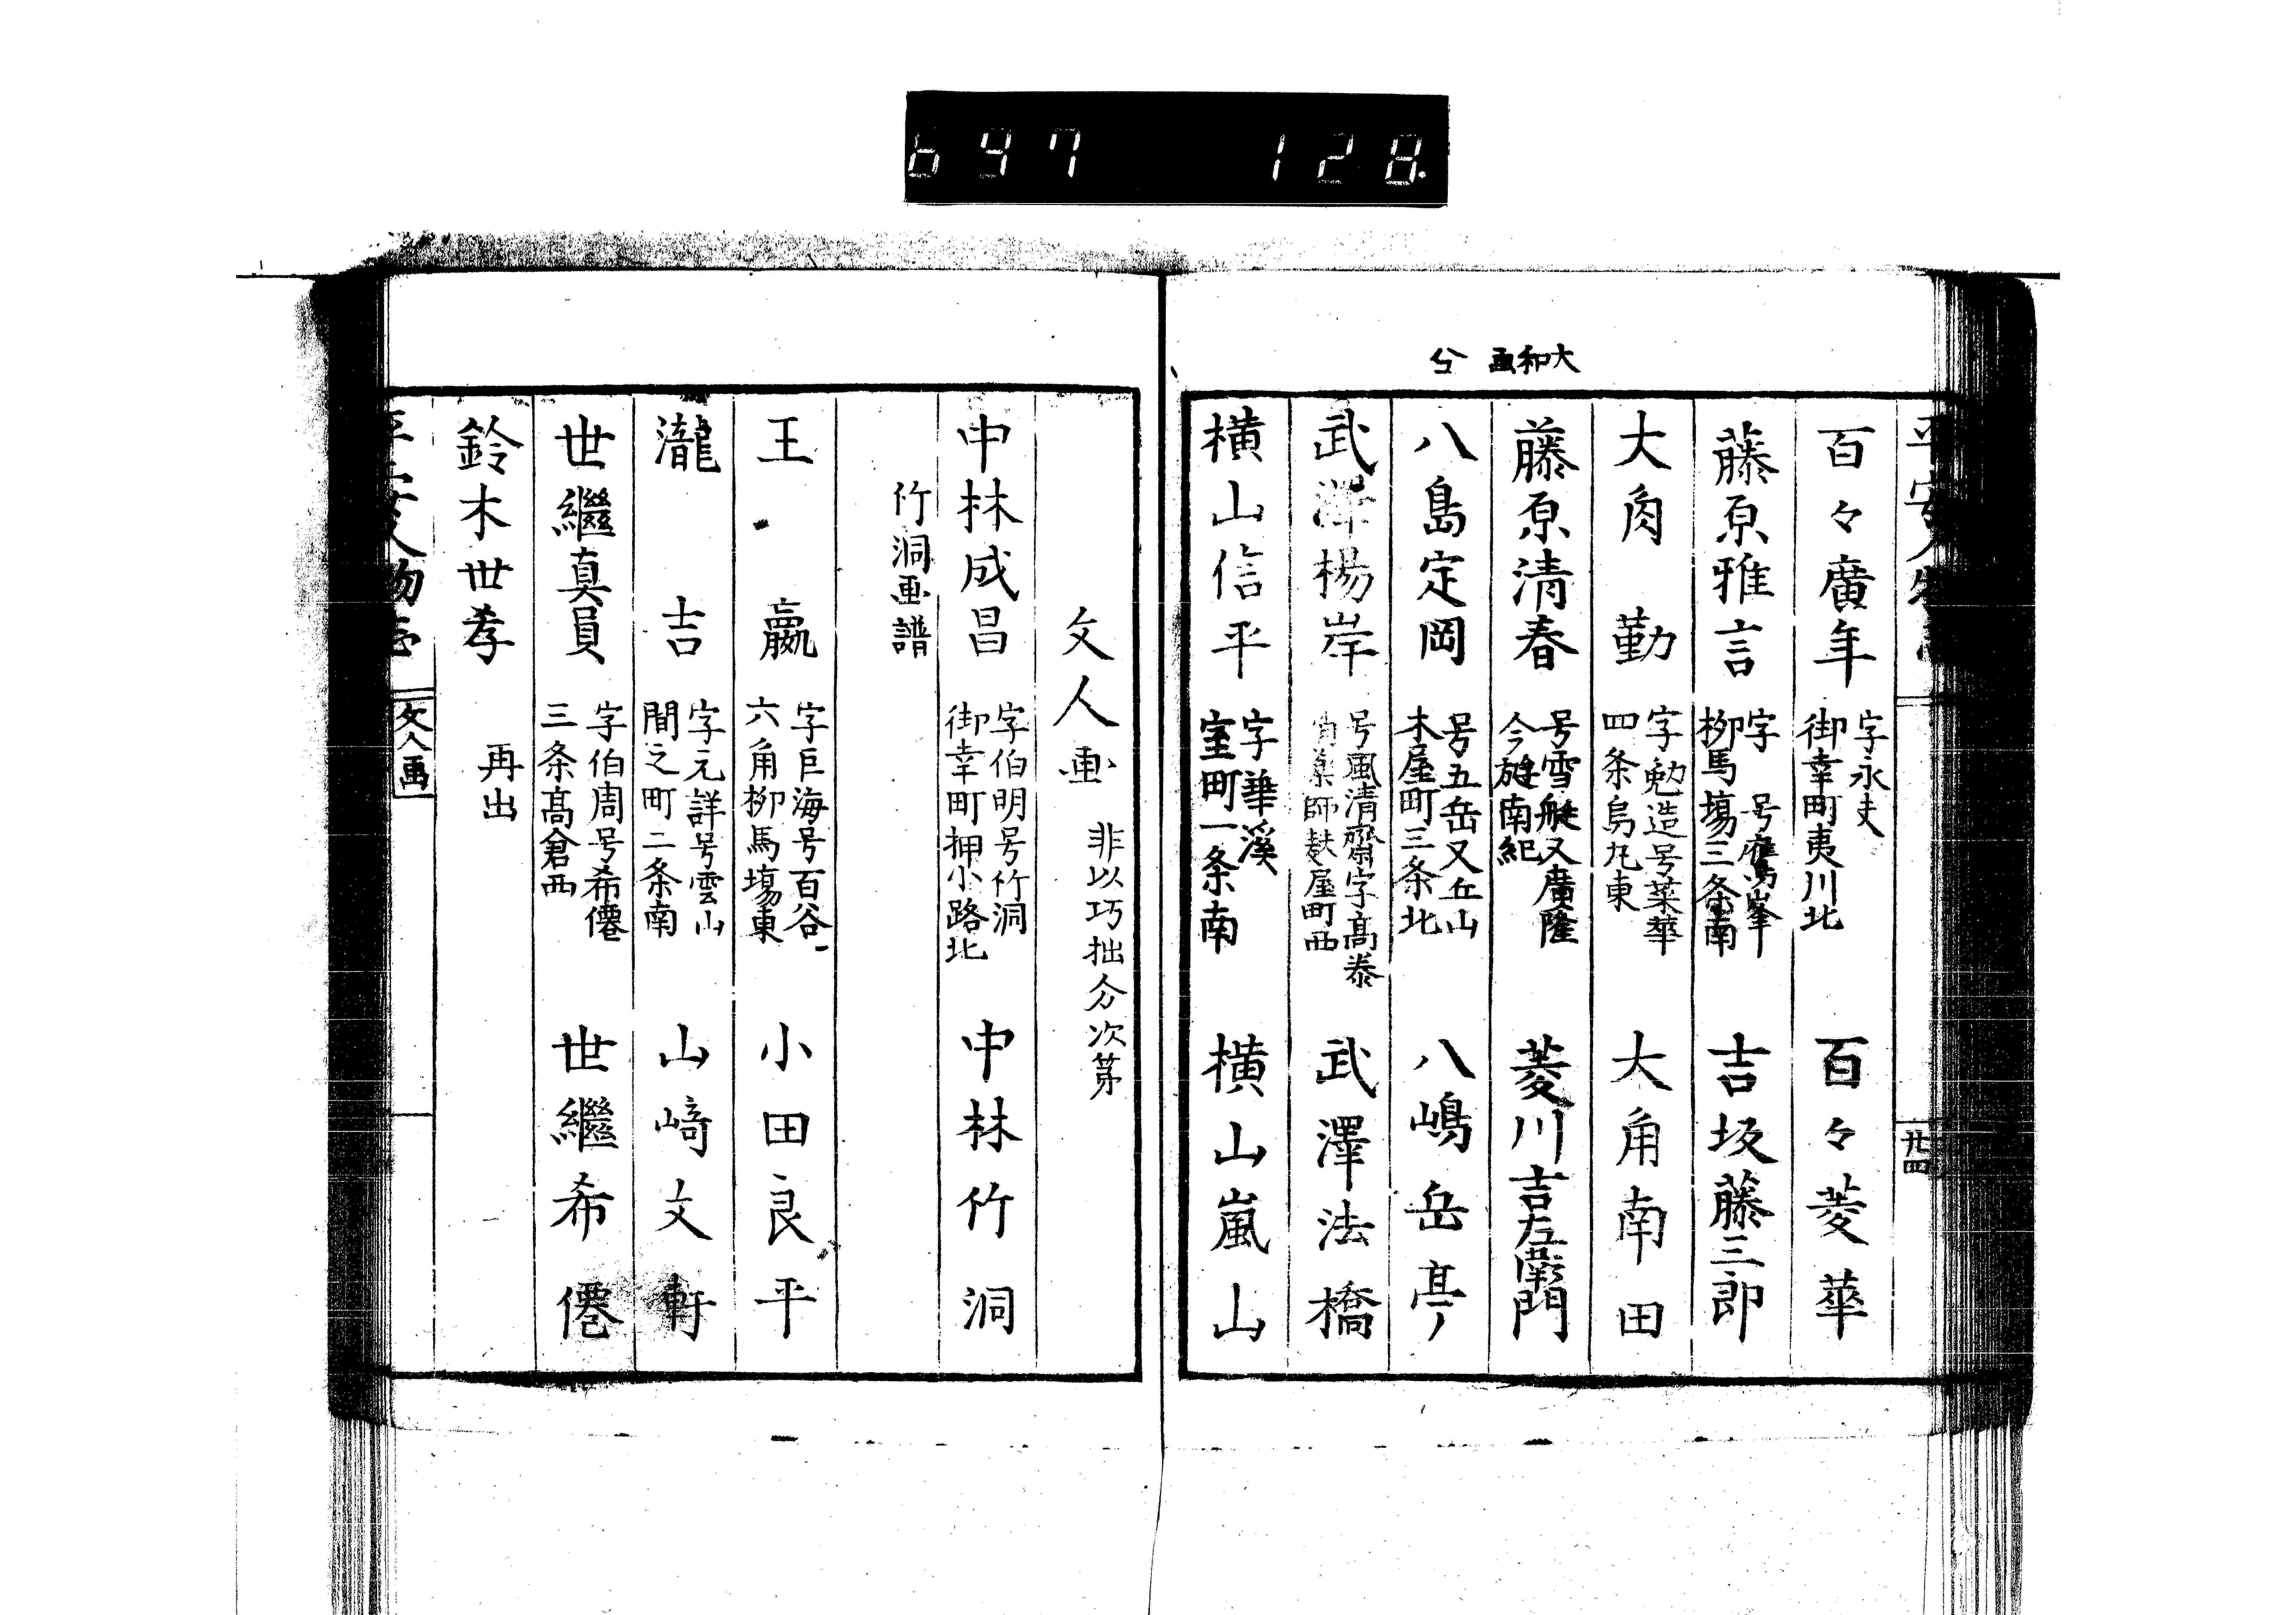 697 128
大和画 兮
百々廣年 字永夫 御幸町夷川北 百々菱華
藤原雅言 字 号鷹峯 柳馬場三条南 吉坂藤三郎
大角勤 字勉造号菜華 四条烏丸東 大角南田
藤原清春 号雪艇又廣隆 今旋南紀 菱川吉左衛門
八島定岡 号五岳又丘山 木屋町三条北 八嶋岳亭
武澤楊岸 号風清齋字高泰 師麸屋町西 武澤法橋
横山信平 字華溪 室町一条南 横山嵐山
廿四
文人画 非以巧拙分次第
中林成昌 字伯明号竹洞 御幸町押小路北 中林竹洞
竹洞画譜
王羸 字巨海号百谷 六角柳馬場東 小田良平
瀧吉 字元詳号雲山 間之町二条南 山﨑文軒
世繼真員 字伯周号希僊 三条高倉西 世繼希僊
鈴木世孝 再出
平安人物志 文人画